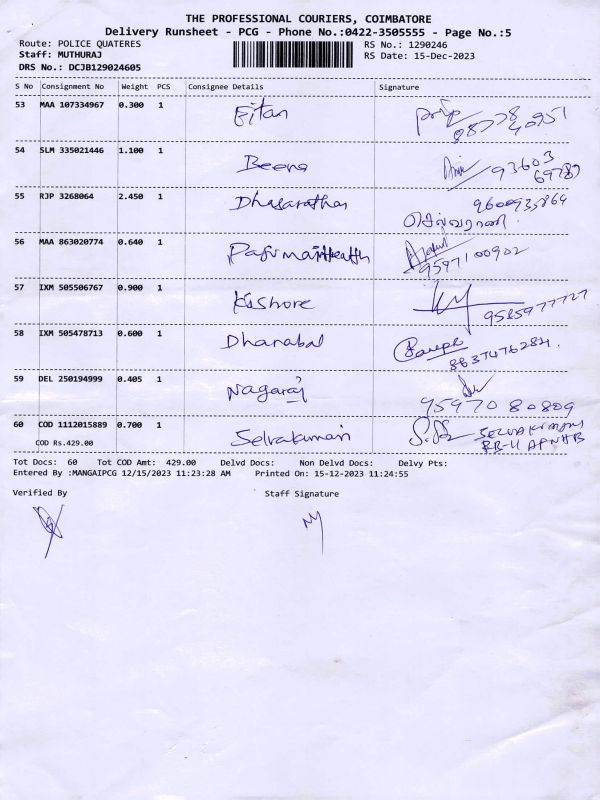 THE PROFESSIONAL COURIERS, COIMBATORE
Delivery Runsheet - PCG - Phone No.:0422-3505555 - Page No.:5
Route: POLICE QUATERES
RS No.: 1290246
Staff: MUTHURAJ
RS Date: 15-Dec-2023
DRS No.: DCJB129024605
S No Consignment No Weight PCS Consignee Details Signature
53 MAA 107334967 0.300 1 Eitan
54 SLM 335021446 1.100 1 Beena 93603
69789
55 RJP 3268064 2.450 1 Dhasarathan 9600935864
செல்வராணி
56 MAA 863020774 0.640 1
9597100902
57 IXM 505506767 0.900 1 Kishore
9585977727
58 IXM 505478713 0.600 1 Dhanabal
8837476284.
59 DEL 250194999 0.405 1 Nagaraj
95970 80809
60 COD 1112015889 0.700 1 Selvakumari
COD Rs.429.00
Tot Docs: 60 Tot COD Amt: 429.00 Delvd Docs: Non Delvd Docs: Delvy Pts:
Entered By :MANGAIPCG 12/15/2023 11:23:28 AM Printed On: 15-12-2023 11:24:55
Verified By Staff Signature